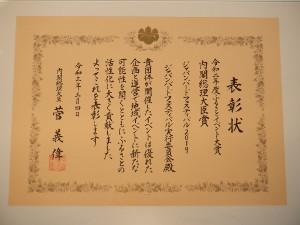 表彰状
令和二年度ふるさとイベント大賞
内閣総理大臣賞
ジャパンバードフェスティバル2019
ジャパンバードフェスティバル実行委員会殿
貴団体が開催したイベントは優れた
企画と運営で地域イベントに新たな
可能性を開くとともにふるさとの
活性化に大きく貢献しました
よってこれを表彰します
令和三年三月四日
内閣総理大臣 菅義偉